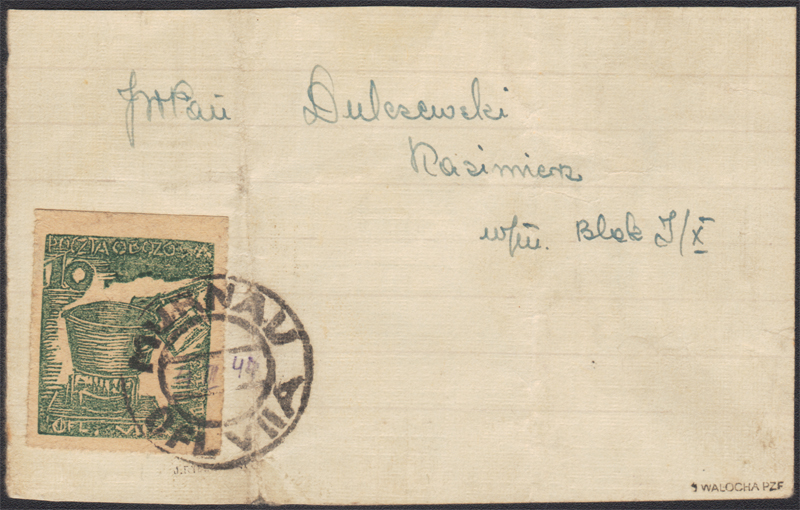 JWPan Dulczewski
Kazimierz
w/m. Blok I/X
POCZTA OBOZOWA
10
OFL. VII
MURNAU
44
OFL VIIA
J. WALOCHA PZF